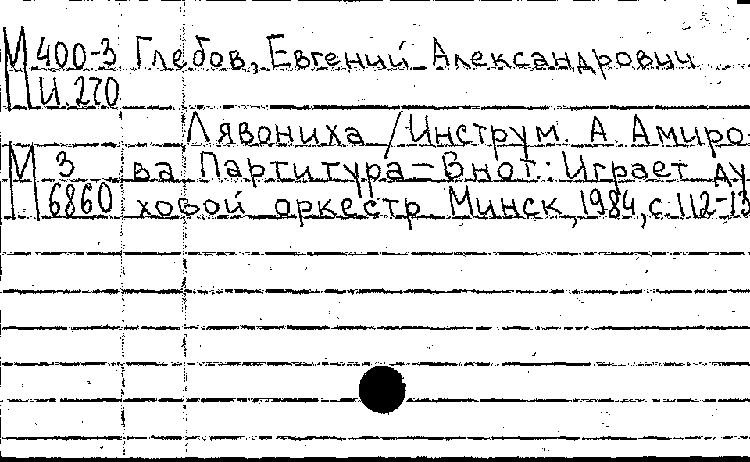 М 400-3 Глебов, Евгений Александрович
И.270
Лявониха / Инструм. А. Амиро
М 3 ва Партитура – В нот.: Играет ду
6860 ховой оркестр. Минск, 1984, с. 112-13